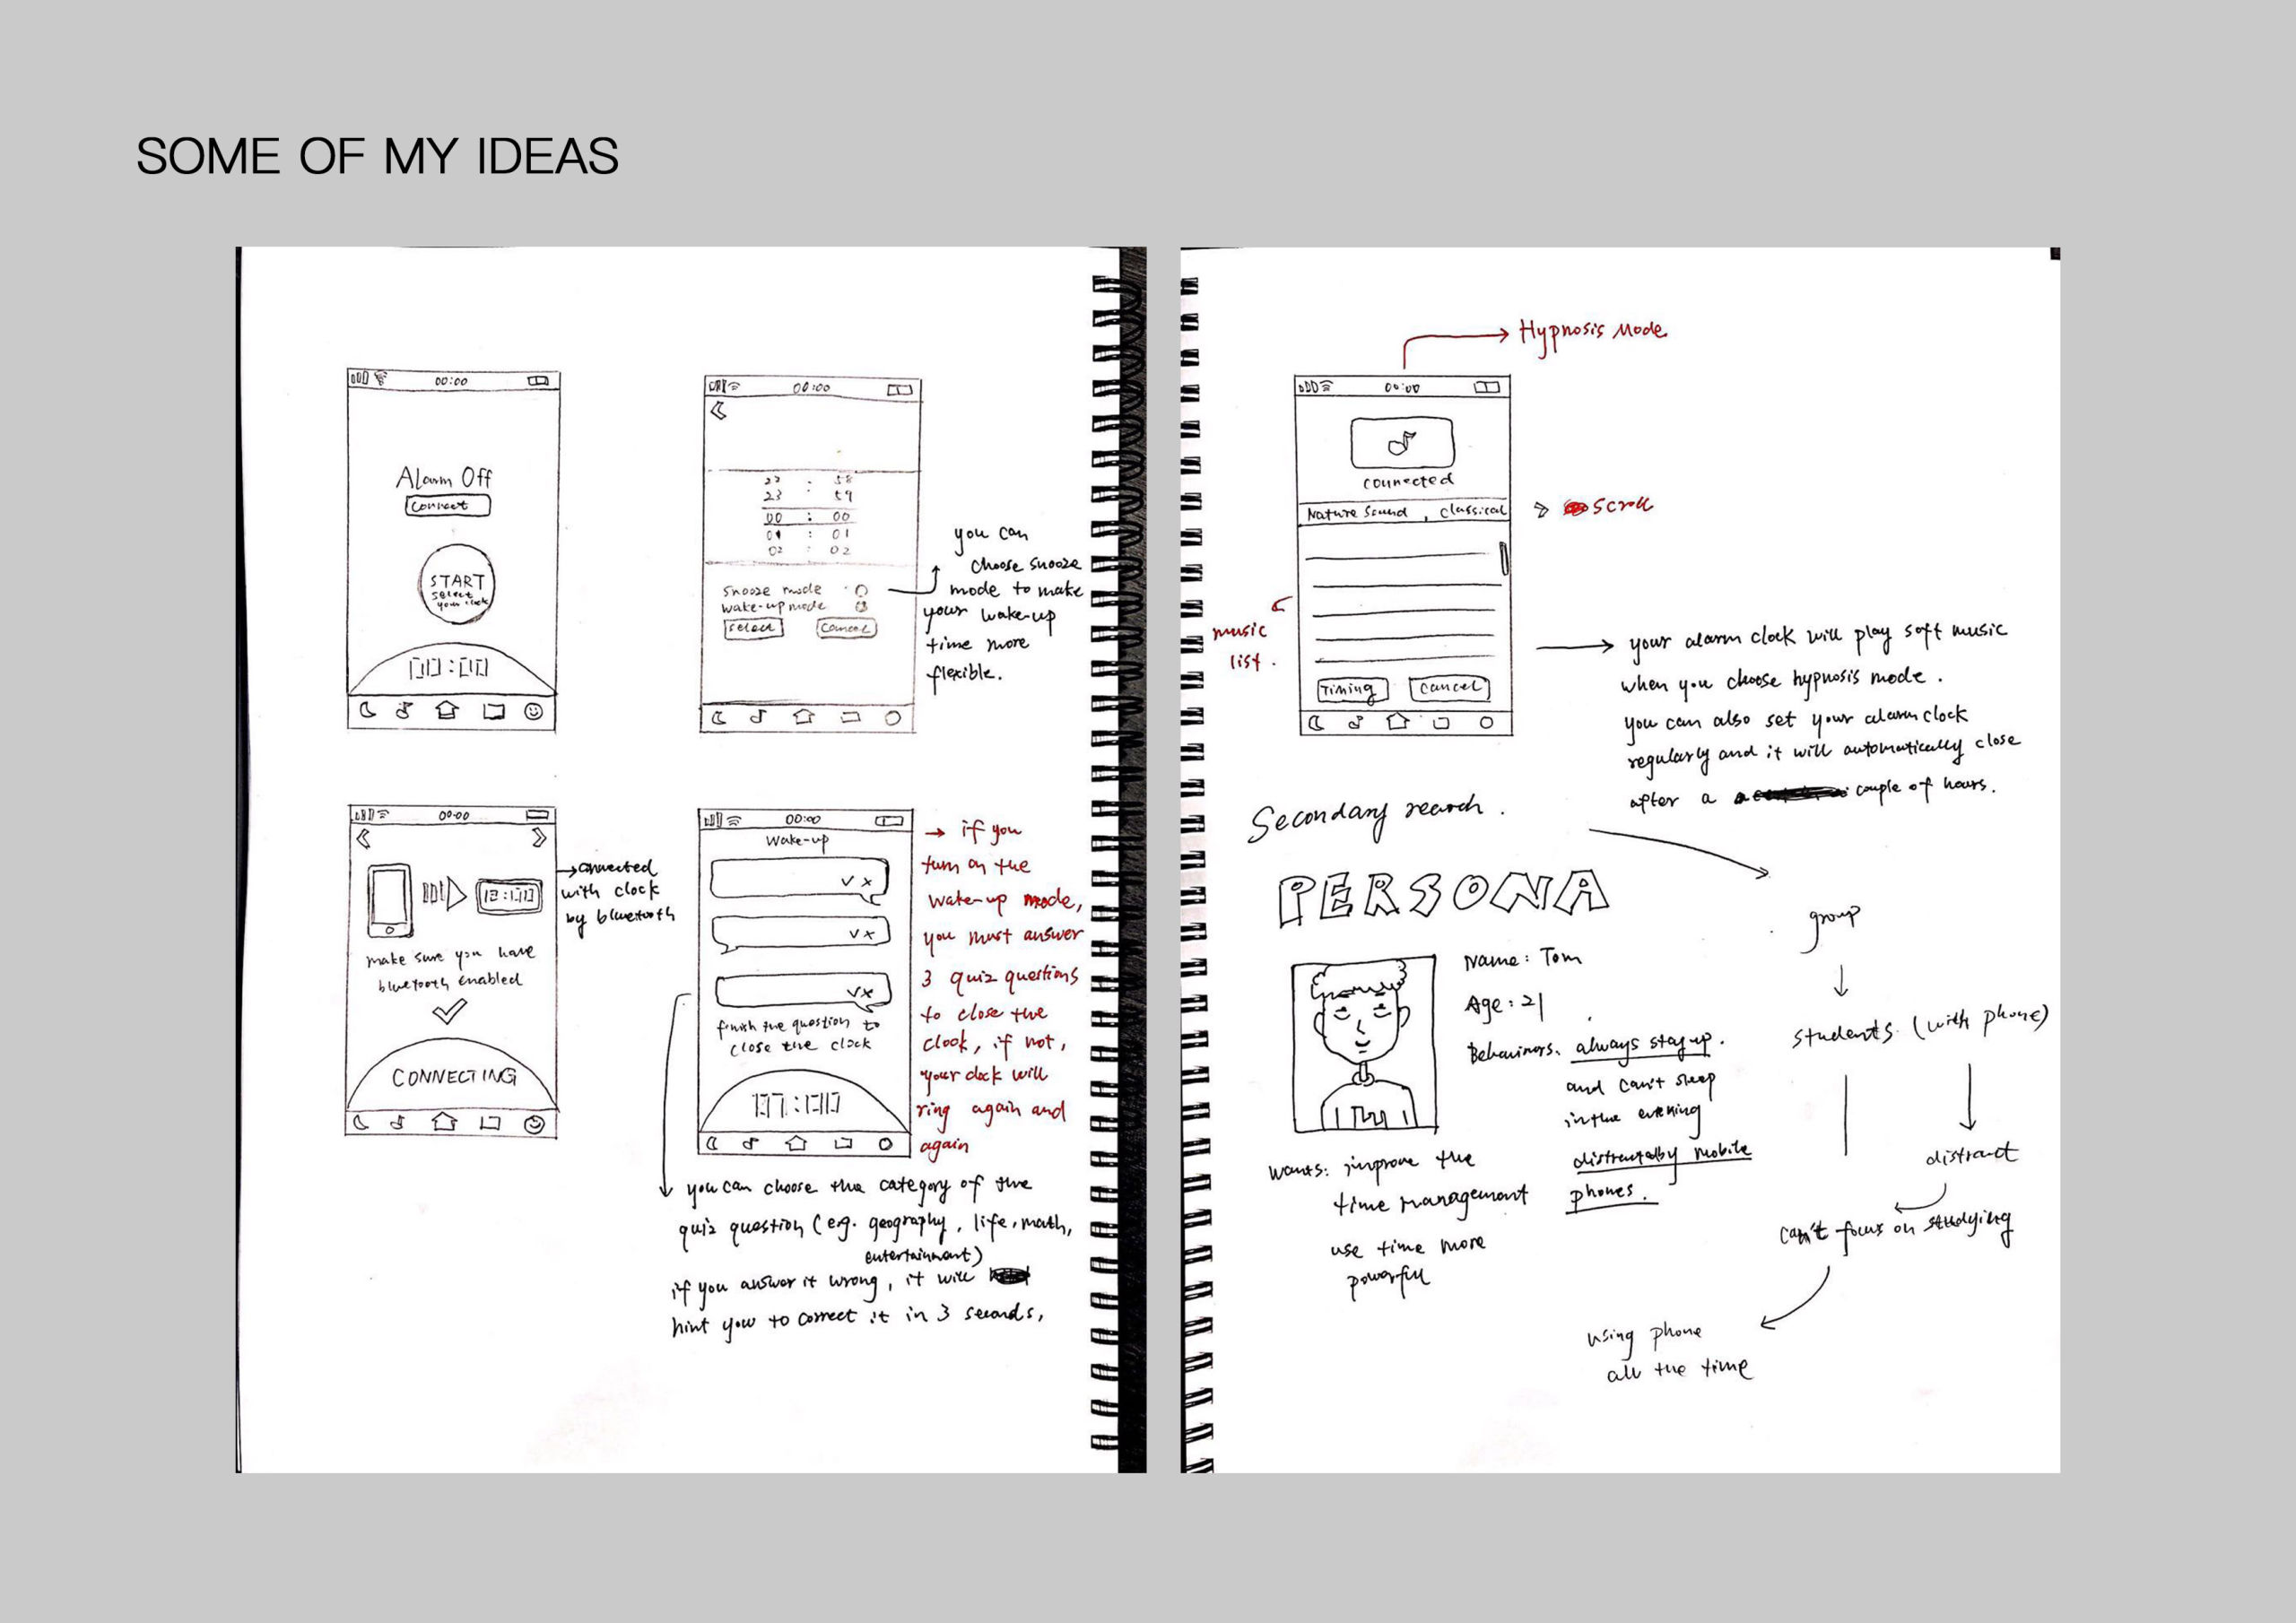 SOME OF MY IDEAS
00:00
Alarm Off
Connect
START
select
your clock
00:00
00:00
22 : 58
23 : 59
00 : 00
01 : 01
02 : 02
snooze mode
wake-up mode
select
Cancel
you can
choose snooze
mode to make
your wake-up
time more
flexible.
00:00
make sure you have
bluetooth enabled
CONNECTING
connected
with clock
by bluetooth
00:00
Wake-up
finish the question to
close the clock
if you
turn on the
wake-up mode,
you must answer
3 quiz questions
to close the
clock, if not,
your clock will
ring again and
again
you can choose the category of the
quiz question (eg. geography, life, math,
entertainment)
if you answer it wrong, it will
hint you to correct it in 3 seconds,
Hypnosis Mode
00:00
connected
Nature Sound , classical
Scroll
music
list.
Timing
Cancel
your alarm clock will play soft music
when you choose hypnosis mode.
you can also set your alarm clock
regularly and it will automatically close
after a couple of hours.
Secondary
PERSONA
Name: Tom
Age: 21
always stay up.
and can't sleep
in the evening
distracted by mobile
phones.
wants: improve the
time management
use time more
powerful
group
students (with phone)
distract
can't focus on studying
using phone
all the time